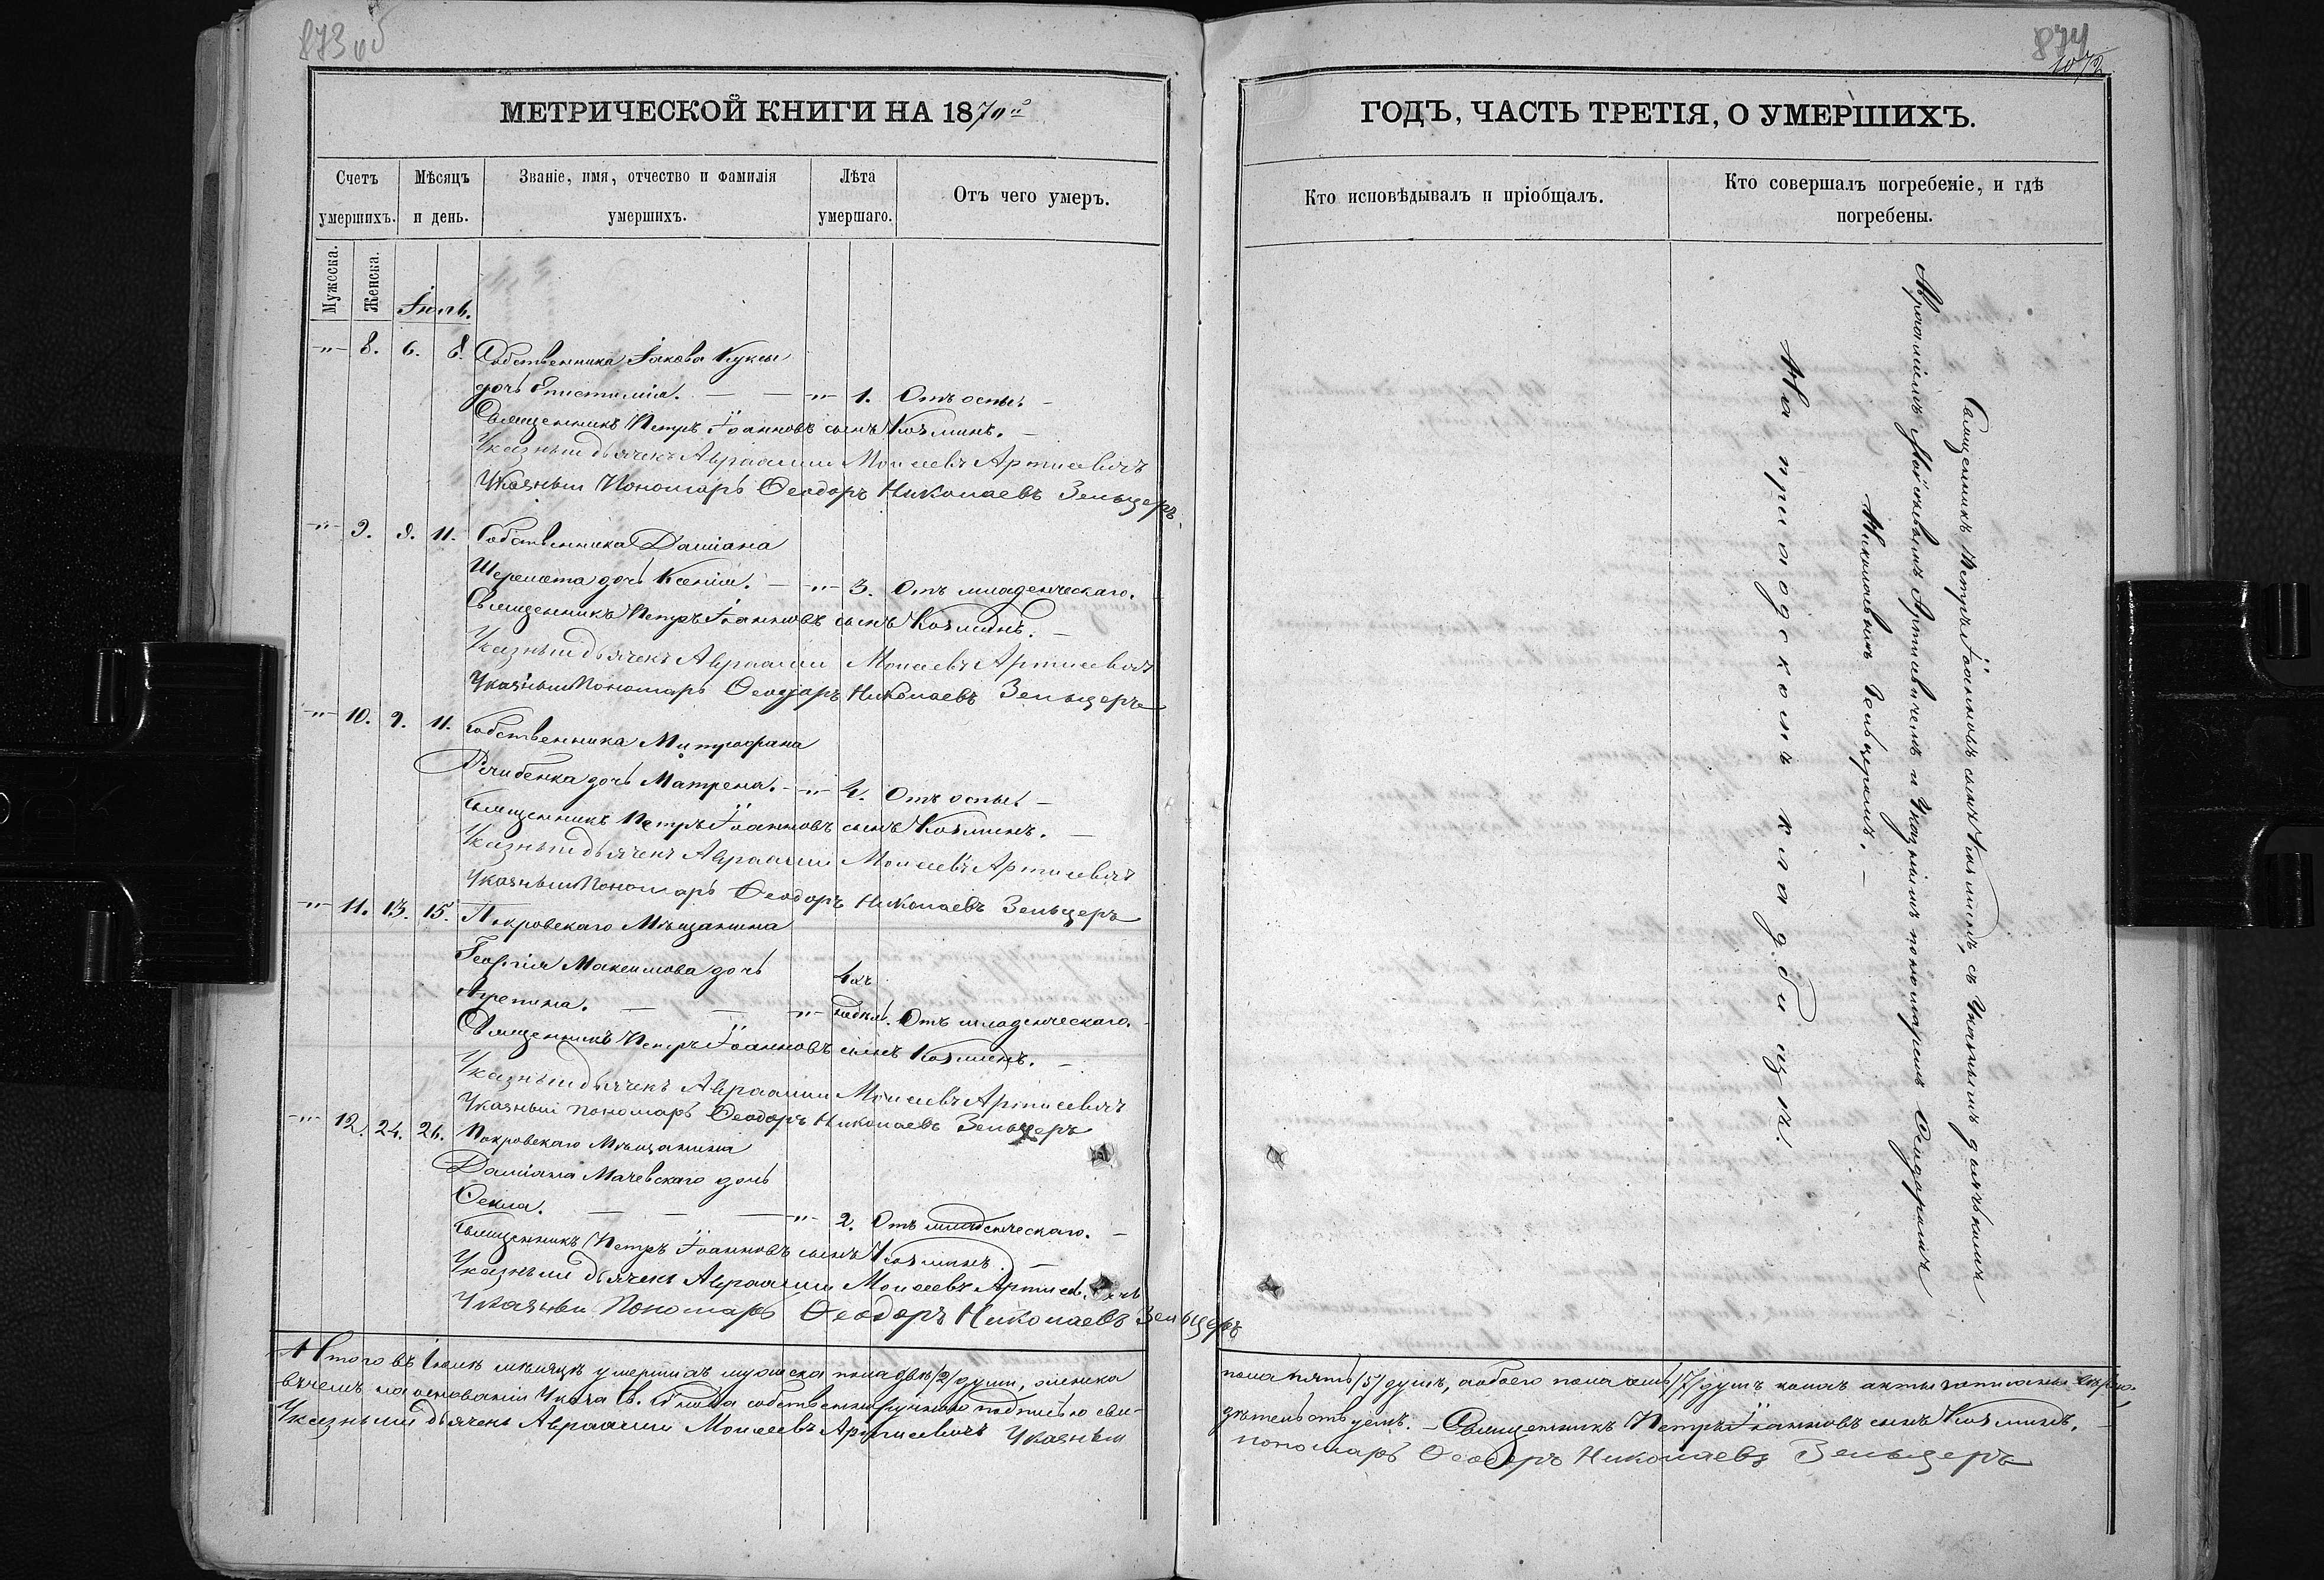 873 об
МЕТРИЧЕСКОЙ КНИГИ НА 1870й
Счетъ умершихъ.
Мѣсяцъ и день.
Званіе, имя, отчество и фамилія умершихъ.
Лѣта умершаго.
Отъ чего умеръ.
Мужеска.
Женска.
Іюль.
-"- 8. 6. 8. Собственника Іакова Куксы
дочь Епистимія. — — -"- 1. Отъ оспы. —
Священникъ Петръ Іоанновъ сынъ Козминъ. —
Указный дьячекъ Авраамий Моисеевъ Артисевичъ
Указный Пономарь Ѳеодоръ Николаевъ Зельцеръ.
-"- 9. 9. 11. Собственника Даміана
Шеремета дочь Ксенія. — -"- 3. Отъ младенческаго.
Священникъ Петръ Іоанновъ сынъ Козминъ. —
Указный дьячекъ Авраамий Моисеевъ Артисевичъ
Указный Пономарь Ѳеодоръ Николаевъ Зельцеръ
-"- 10. 9. 11. Собственника Митрофана
дочь Матрена. - -"- 4. Отъ оспы. —
Священникъ Петръ Іоанновъ сынъ Козминъ. —
Указный дьячекъ Авраамий Моисеевъ Артисевичъ
Указный Пономарь Ѳеодоръ Николаевъ Зельцеръ
-"- 11. 13. 15. Покровскаго Мѣщанина
Георгія Максимова дочь 4хъ
Агрепина. — — -"- недѣл. Отъ младенческаго.
Священникъ Петръ Іоанновъ сынъ Козминъ. —
Указный дьячекъ Авраамий Моисеевъ Артисевичъ
Указный пономарь Ѳеодоръ Николаевъ Зельцеръ
-"- 12. 24. 26. Покровскаго Мѣщанина
Даміана Мачевскаго дочь
Ѳекла. — — — -"- 2. Отъ младенческаго. —
Священникъ Петръ Іоанновъ сынъ Козминъ. —
Указный дьячекъ Авраамий Моисеевъ Артисевичъ
Указный Пономарь Ѳеодоръ Николаевъ Зельцеръ
Итого въ Іюлѣ мѣсяцѣ умершихъ мужеска пола двѣ /2/ души, женска
въ чемъ на основаніи Указа Св. Сѵнода собственноручною подписью сви-
Указный дьячекъ Авраамий Моисеевъ Артисевичъ Указный
874
ГОДЪ, ЧАСТЬ ТРЕТІЯ, О УМЕРШИХЪ.
Кто исповѣдывалъ и пріобщалъ.
Кто совершалъ погребеніе, и гдѣ погребены.
Священникъ Петръ Іоанновъ сынъ Козминъ, съ Указнымъ дьячкомъ
Авраміемъ Моисеевымъ Артисевичемъ и Указнымъ пономаремъ Ѳеодоромъ
Николаевымъ Зельцеромъ. —
На приходскомъ кладбищѣ.
пола пять /5/ душъ, а обоего пола семь /7/ душъ
дѣтельствуемъ. — Священникъ Петръ Іоанновъ сынъ Козминъ. —
пономарь Ѳеодоръ Николаевъ Зельцеръ